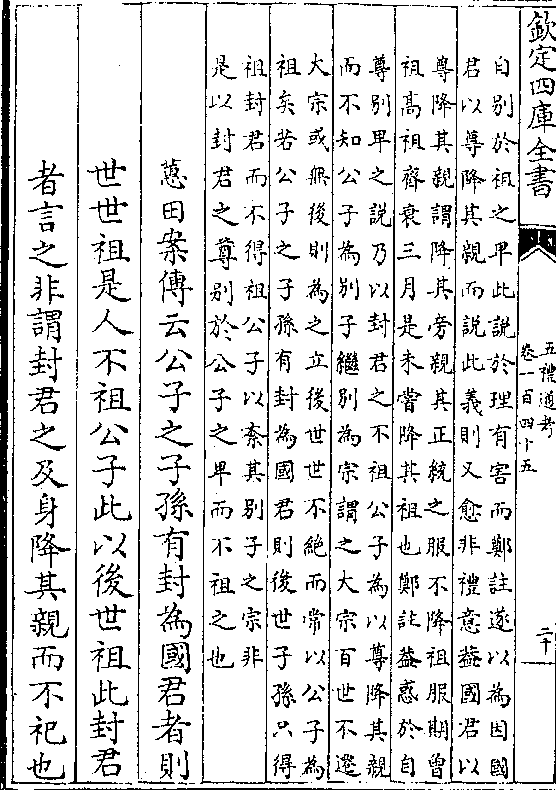 欽定四庫全書
五禮通考
卷一百四十五
二十
自別於祖之卑此說於理有害而鄭註遂以為因國
君以尊降其親而說此義則又愈非禮意蓋國君以
尊降其親謂降其旁親其正統之服不降祖服期曾
祖髙祖齊衰三月是未嘗降其祖也鄭註蓋惑於自
尊別卑之説乃以封君之不祖公子為以尊降其親
而不知公子為別子繼別為宗謂之大宗百世不遷
大宗或無後則為之立後世世不絶而常以公子為
祖矣若公子之子孫有封為國君則後世子孫只得
祖封君而不得祖公子以紊其別子之宗非
是以封君之尊別於公子之卑而不祖之也
蕙田案傳云公子之子孫有封為國君者則
世世祖是人不祖公子此以後世祖此封君
者言之非謂封君之及身降其親而不祀也